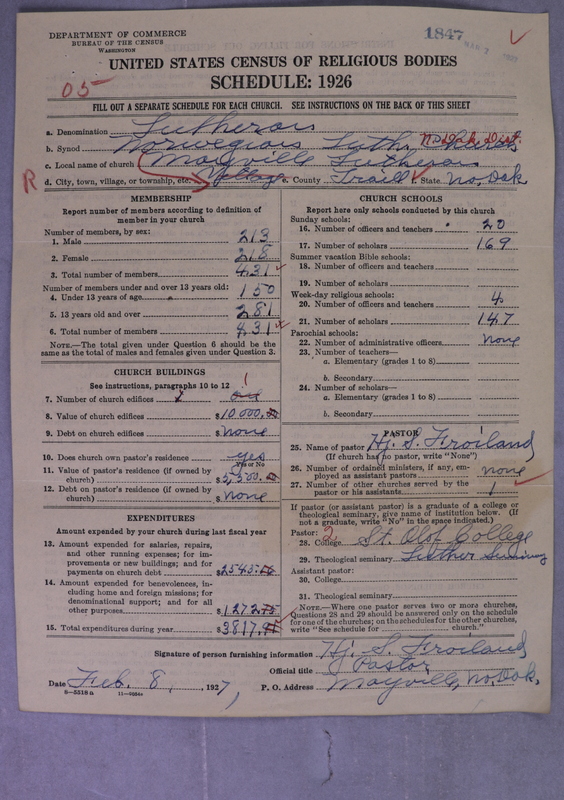 DEPARTMENT OF COMMERCE
BUREAU OF THE CENSUS
WASHINGTON
1847
UNITED STATES CENSUS OF RELIGIOUS BODIES
SCHEDULE: 1926
05
FILL OUT A SEPARATE SCHEDULE FOR EACH CHURCH. SEE INSTRUCTIONS ON THE BACK OF THIS SHEET
a. Denomination Lutheran
b. Synod Norwegian Luth. No. Dak. Dist.
c. Local name of church Mayville Lutheran
R
d. City, town, village, or township, etc. Village e. County Traill f. State No. Dak
MEMBERSHIP
Report number of members according to definition of member in your church
Number of members, by sex:
1. Male 213
2. Female 218
3. Total number of members 431
Number of members under and over 13 years old:
4. Under 13 years of age 150
5. 13 years old and over 281
6. Total number of members 431
NOTE.—The total given under Question 6 should be the same as the total of males and females given under Question 3.
CHURCH BUILDINGS
See instructions, paragraphs 10 to 12
7. Number of church edifices 1 one
8. Value of church edifices $10,000.00
9. Debt on church edifices $ None
10. Does church own pastor's residence? yes
Yes or No
11. Value of pastor's residence (if owned by church) $5,500.00
12. Debt on pastor's residence (if owned by church) $ None
EXPENDITURES
Amount expended by your church during last fiscal year
13. Amount expended for salaries, repairs, and other running expenses; for improvements or new buildings; and for payments on church debt $2545.
14. Amount expended for benevolences, including home and foreign missions; for denominational support; and for all other purposes $1272.
15. Total expenditures during year $3817.
CHURCH SCHOOLS
Report here only schools conducted by this church
Sunday schools:
16. Number of officers and teachers 20
17. Number of scholars 169
Summer vacation Bible schools:
18. Number of officers and teachers
19. Number of scholars
Week-day religious schools:
20. Number of officers and teachers 4
21. Number of scholars 147
Parochial schools:
22. Number of administrative officers None
23. Number of teachers—
a. Elementary (grades 1 to 8)
b. Secondary
24. Number of scholars—
a. Elementary (grades 1 to 8)
b. Secondary
PASTOR
25. Name of pastor Hj. S. Froiland
(If church has no pastor, write "None")
26. Number of ordained ministers, if any, employed as assistant pastors none
27. Number of other churches served by the pastor or his assistants 1
If pastor (or assistant pastor) is a graduate of a college or theological seminary, give name of institution below. (If not a graduate, write "No" in the space indicated.)
Pastor: 2
28. College St. Olaf College
29. Theological seminary Luther Seminary
Assistant pastor:
30. College
31. Theological seminary
NOTE.—Where one pastor serves two or more churches, Questions 28 and 29 should be answered only on the schedule for one of the churches; on the schedules for the other churches, write "See schedule for church."
Signature of person furnishing information Hj. S. Froiland
Official title Pastor
Date Feb. 8, 1927, P. O. Address Mayville, No. Dak.
8-5518 a